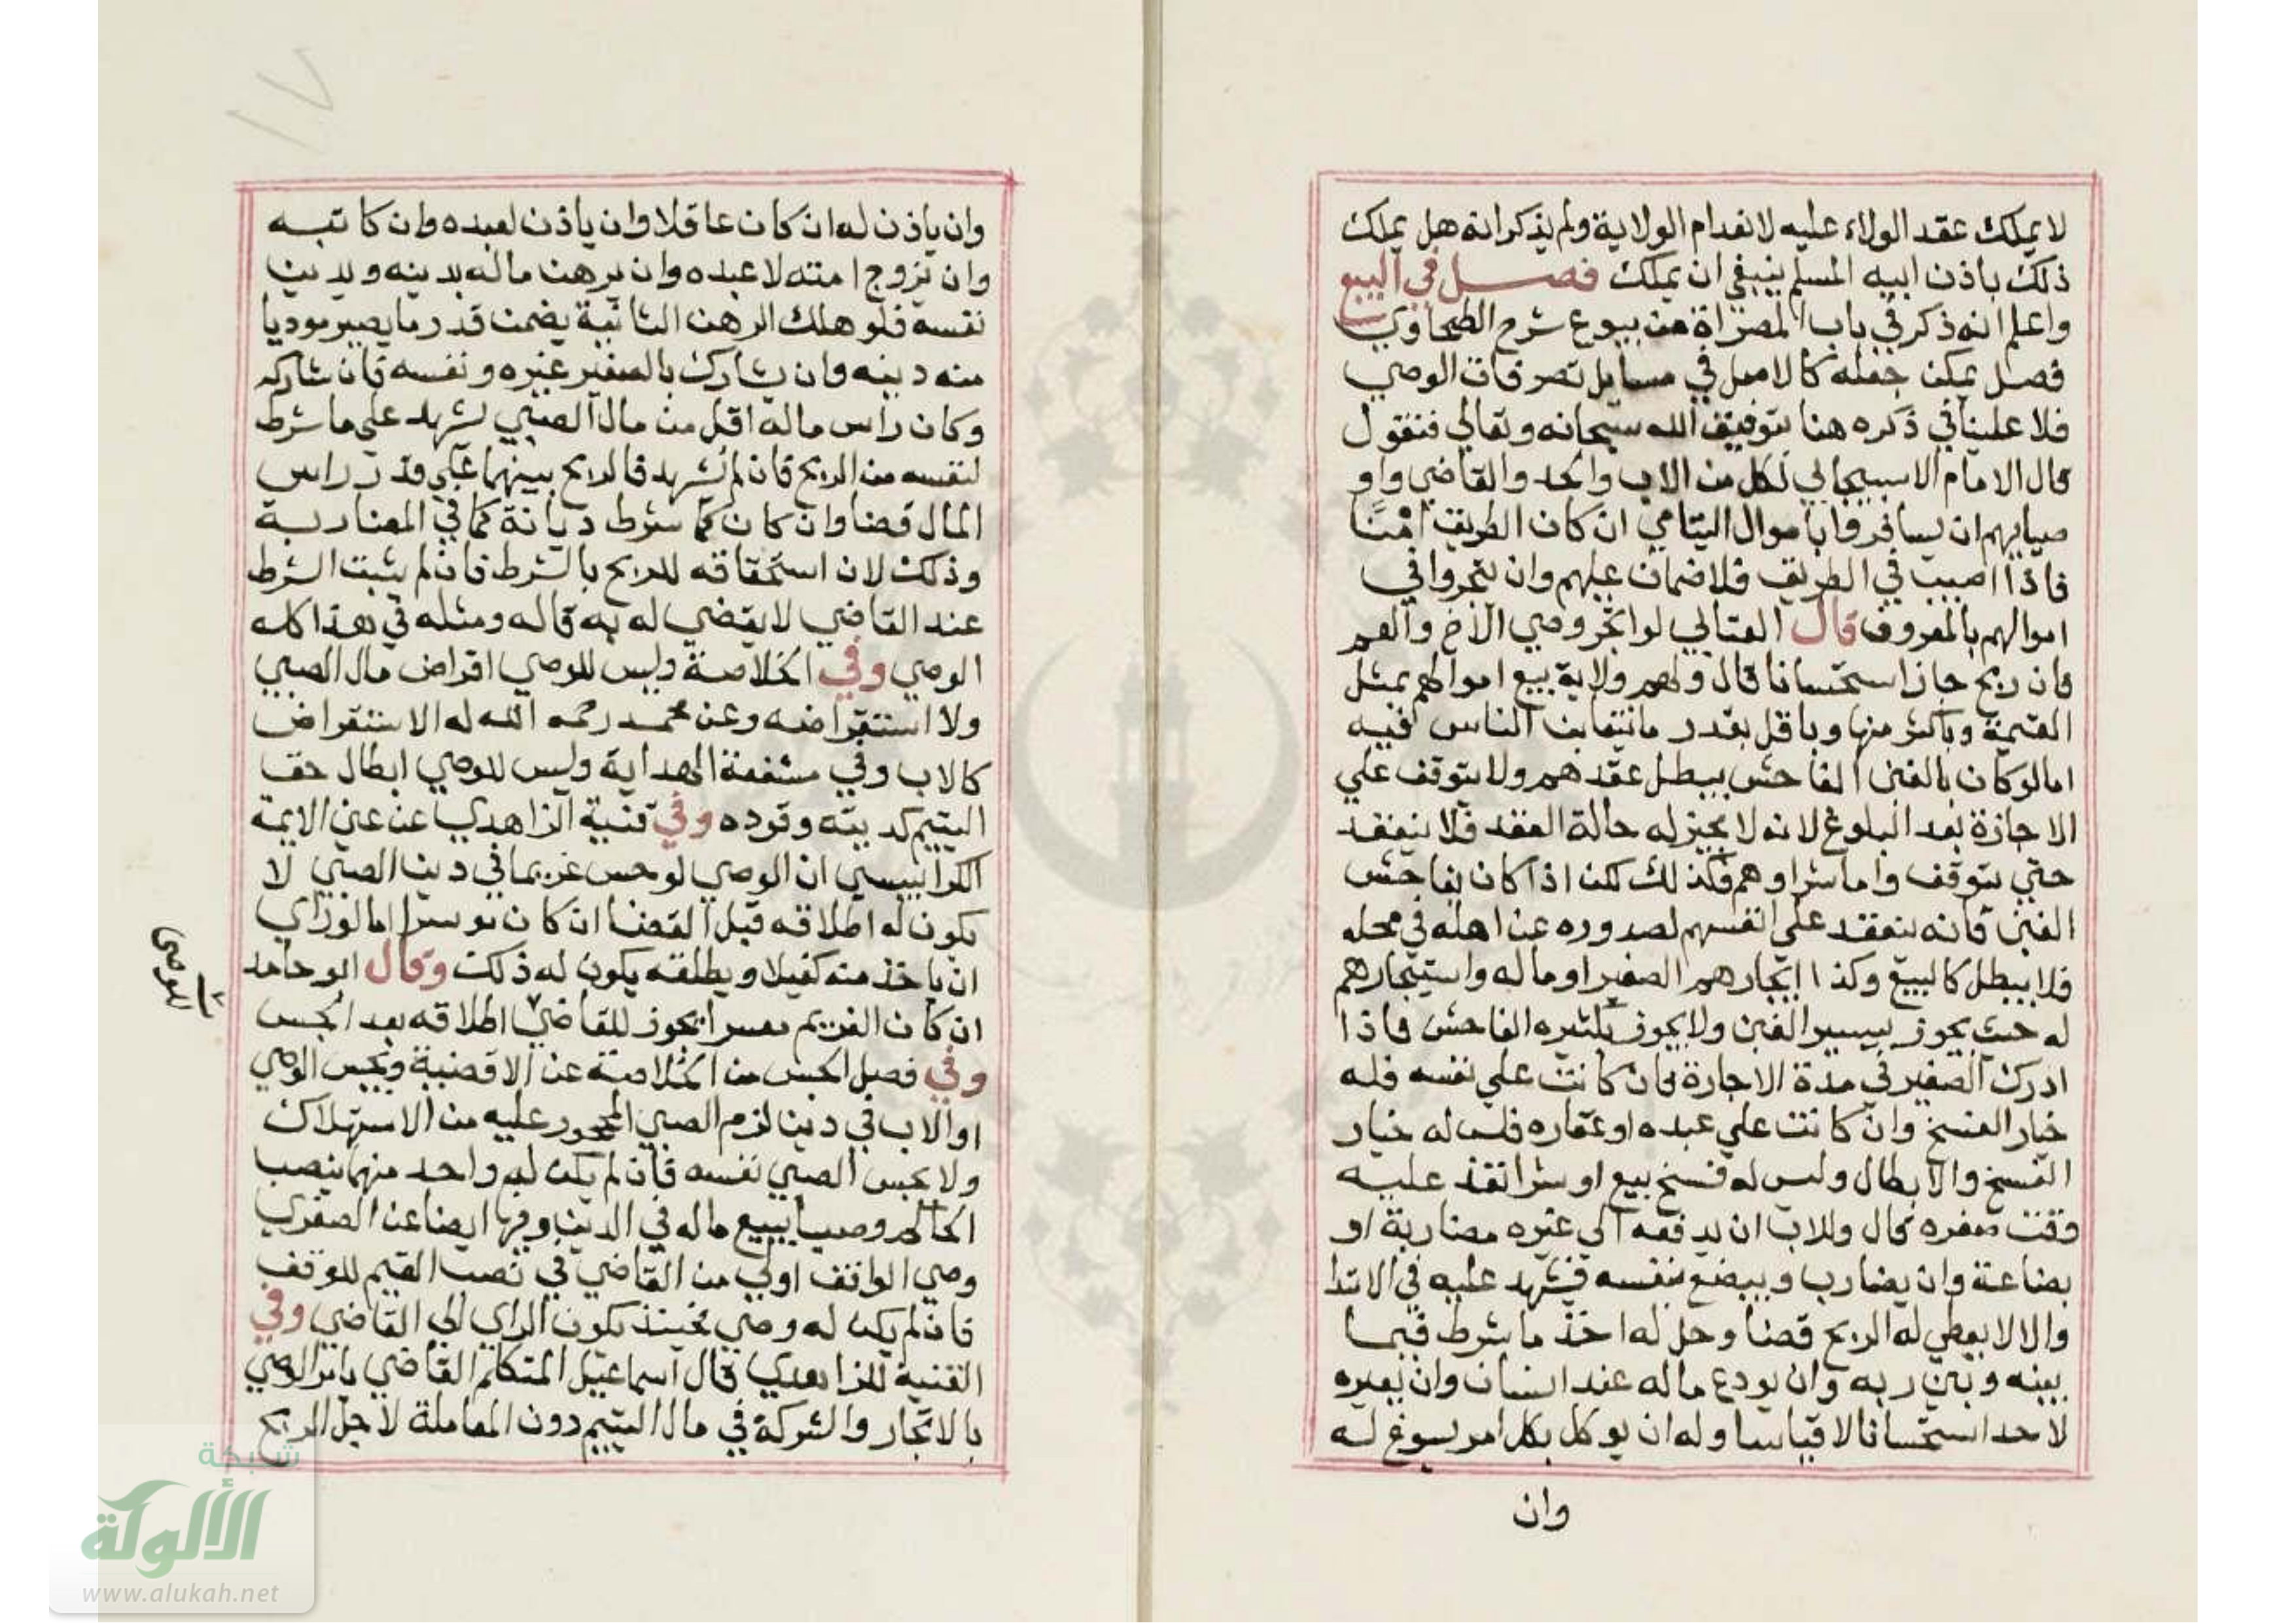 لا يملك عقد الولاء عليه لانعدام الولاية ولم يذكر انه هل يملك
ذلك باذن ابيه المسلم ينبغي ان يملك فصل في البيع
واعلم انه ذكر في باب المصراة من بيوع شرح الطحاوي
فصل يمكن جعله كالاصل في مسايل تصرفات الوصي
فلا علينا في ذكره هنا بتوفيق الله سبحانه وتعالي فنقول
قال الامام الاسبيجابي لكل من الاب والجد والقاضي واو
صيايهم ان يسافروا باموال اليتامي ان كان الطريق امنا
فاذا اصيب في الطريق فلا ضمان عليهم وان يتجروا في
اموالهم بالمعروف قال العتابي لو اتجر وصي الاخ والعم
فان ربح جاز استحسانا قال ولهم ولاية بيع اموالهم بمثل
القيمة وباكثر منها وباقل بقدر ما يتغابن الناس فيه
اما لو كان بالغبن الفاحش يبطل عقدهم ولا يتوقف علي
الاجازة بعد البلوغ لانه لا مجيز له حالة العقد فلا ينعقد
حتي يتوقف واما شراوهم فكذلك لكن اذا كان بفاحش
الغبن فانه ينعقد علي انفسهم لصدوره عن اهله في محله
فلا يبطل كالبيع وكذا ايجارهم الصغير او ماله واستيجارهم
له حيث يجوز بيسير الغبن ولا يجوز بكثيره الفاحش فاذا
ادرك الصغير في مدة الاجارة فان كانت علي نفسه فله
خيار الفسخ وان كانت علي عبده او عقاره فليس له خيار
الفسخ والابطال وليس له فسخ بيع او شرا نفذ عليه
وقت صغره قال وللاب ان يدفعه الي غيره مضاربة او
بضاعة وان يضارب ويبضع بنفسه فيشهد عليه في الابتدا
والا لا يعطي له الربح قضا وحل له اخذ ما شرط فيما
بينه وبين ربه وان يودع ماله عند انسان وان يعيره
لاحد استحسانا لا قياسا وله ان يوكل بكل امر يسوغ له
وان
١٧
وان ياذن له ان كان عاقلا وان ياذن لعبده وان كاتبه
وان يزوج امته لا عبده وان يرهن ماله بدينه وبدين
نفسه فلو هلك الرهن الثانية يضمن قدر ما يصير موديا
منه دينه وان يشارك بالصغير غيره ونفسه فان شاركه
وكان راس ماله اقل من مال الصبي يشهد علي ما شرط
لنفسه من الربح فان لم يشهد فالربح بينهما علي قدر راس
المال قضا وان كان كما شرط ديانة كما في المضاربة
وذلك لان استحقاقه للربح بالشرط فان لم يثبت الشرط
عند القاضي لا يقضي له به قاله ومثله في هذا كله
الوصي وفي الخلاصة وليس للوصي اقراض مال الصبي
ولا استقراضه وعن محمد رحمه الله له الاستقراض
كالاب وفي شفعة الهداية وليس للوصي ابطال حق
اليتيم كديته وقوده وفي قنية الزاهدي عن عين الايمة
الكرابيسي ان الوصي لو حبس غريما في دين الصبي لا
يكون له اطلاقه قبل القضا ان كان موسرا اما لو راي
ان ياخذ منه كفيلا ويطلقه يكون له ذلك وقال ابو حامد
ان كان الغريم معسرا يجوز للقاضي اطلاقه بعد الحبس
للوصي
وفي فصل الحبس من الخلاصة عن الاقضية ويحبس الوصي
او الاب في دين لزم الصبي المحجور عليه من الاستهلاك
ولا يحبس الصبي نفسه فان لم يكن له واحد منهما ينصب
الحاكم وصيا يبيع ماله في الدين وفيها ايضا عن الصغري
وصي الواقف اولي من القاضي في نصب القيم للوقف
فان لم يكن له وصي فحينئذ يكون الراي الي القاضي وفي
القنية للزاهدي قال اسماعيل المتكلم القاضي يامر الوصي
بالاتجار والشركة في مال اليتيم دون المعاملة لاجل الربح
شبكة
الألوكة
www.alukah.net